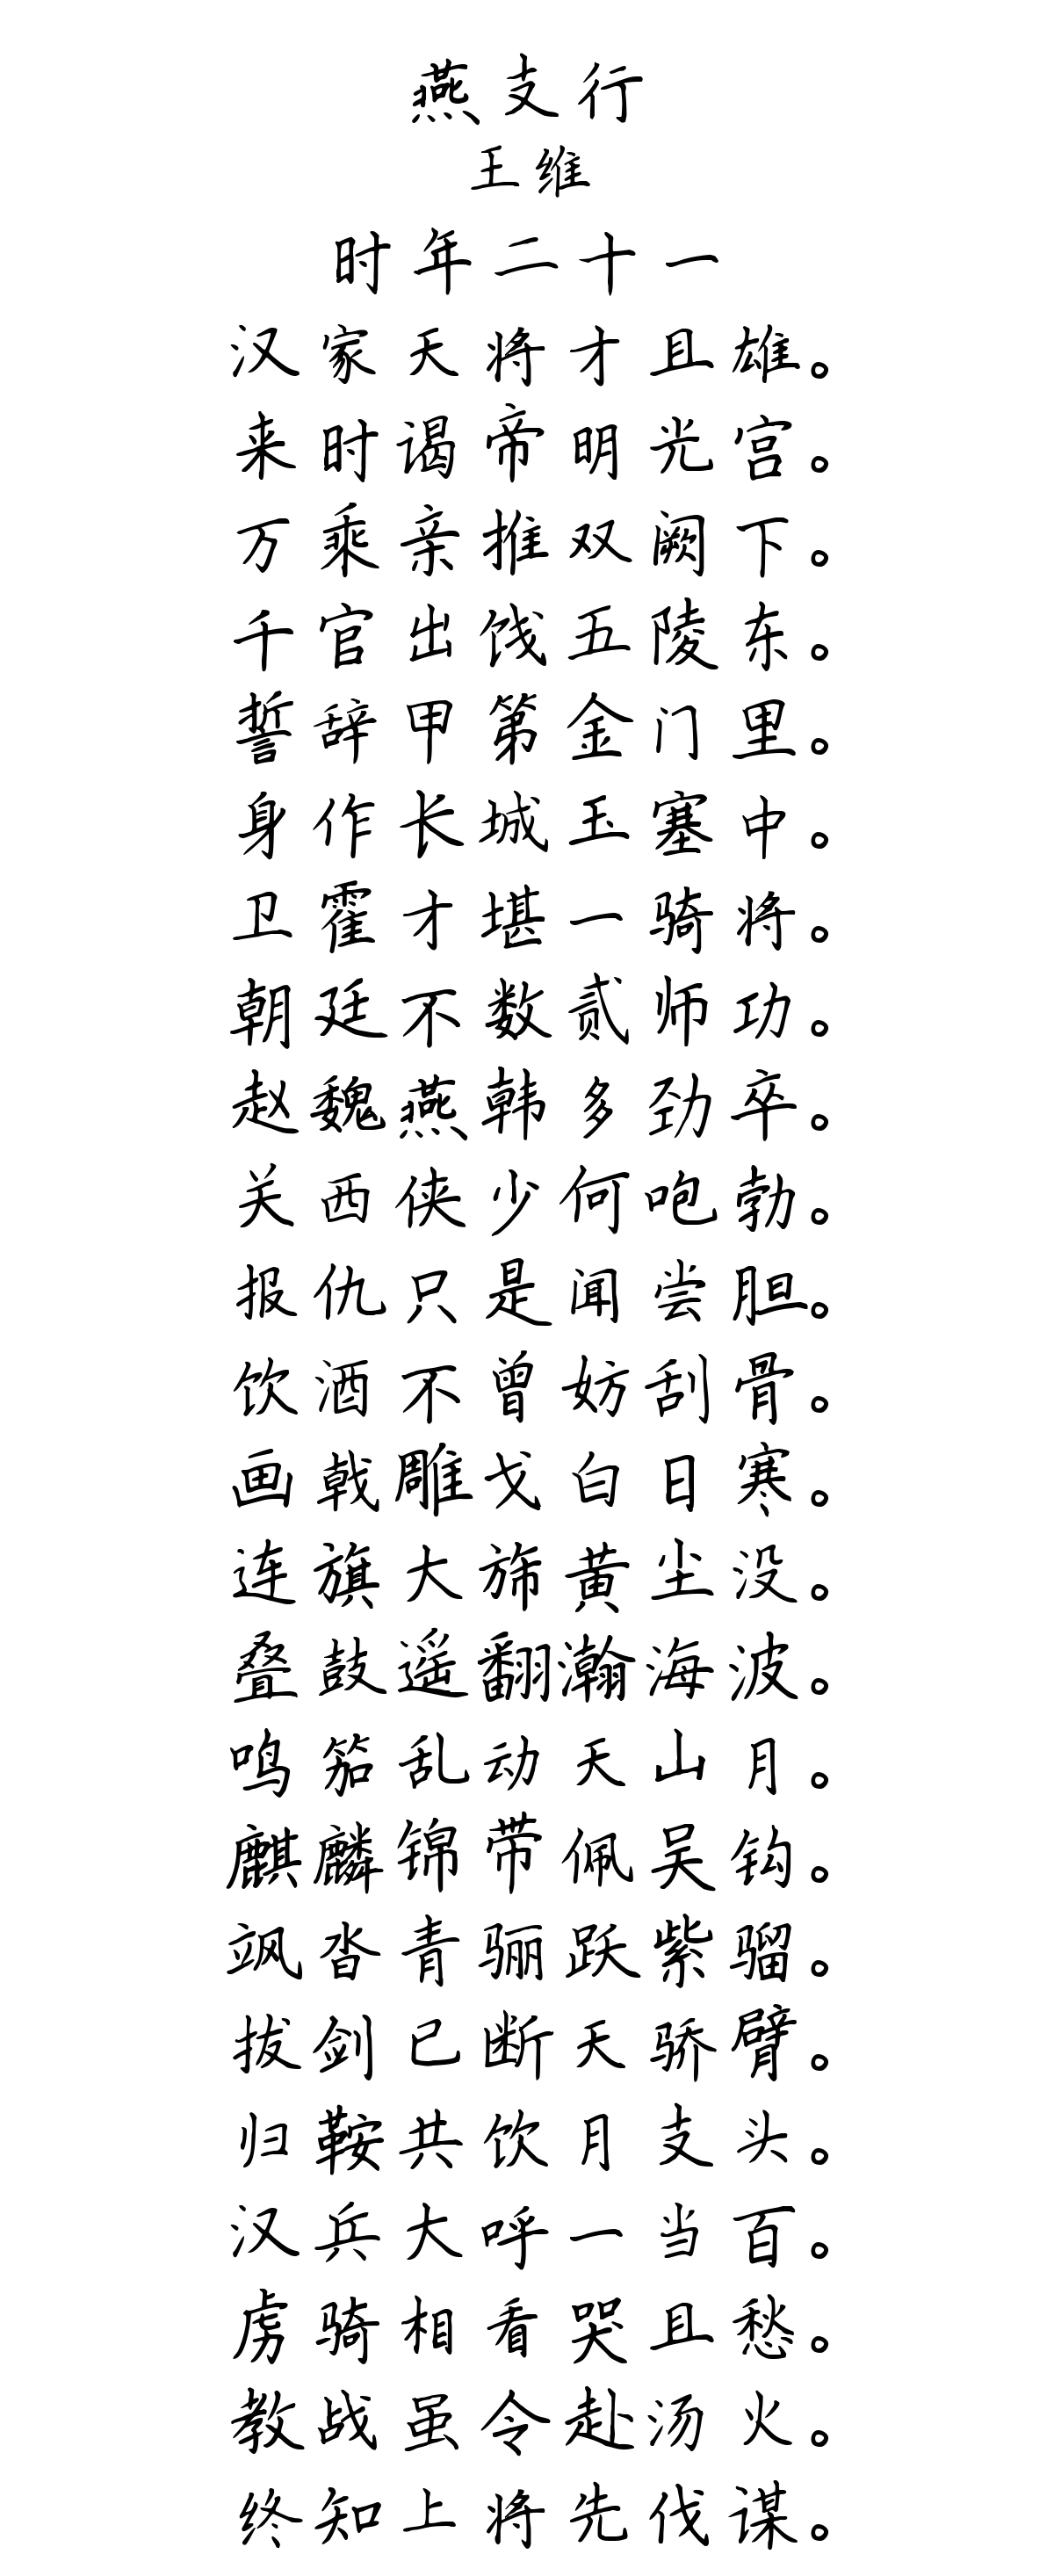 燕支行
王维
时年二十一
汉家天将才且雄。
来时谒帝明光宫。
万乘亲推双阙下。
千官出饯五陵东。
誓辞甲第金门里。
身作长城玉塞中。
卫霍才堪一骑将。
朝廷不数贰师功。
赵魏燕韩多劲卒。
关西侠少何咆勃。
报仇只是闻尝胆。
饮酒不曾妨刮骨。
画戟雕戈白日寒。
连旗大旆黄尘没。
叠鼓遥翻瀚海波。
鸣笳乱动天山月。
麒麟锦带佩吴钩。
飒沓青骊跃紫骝。
拔剑已断天骄臂。
归鞍共饮月支头。
汉兵大呼一当百。
虏骑相看哭且愁。
教战虽令赴汤火。
终知上将先伐谋。